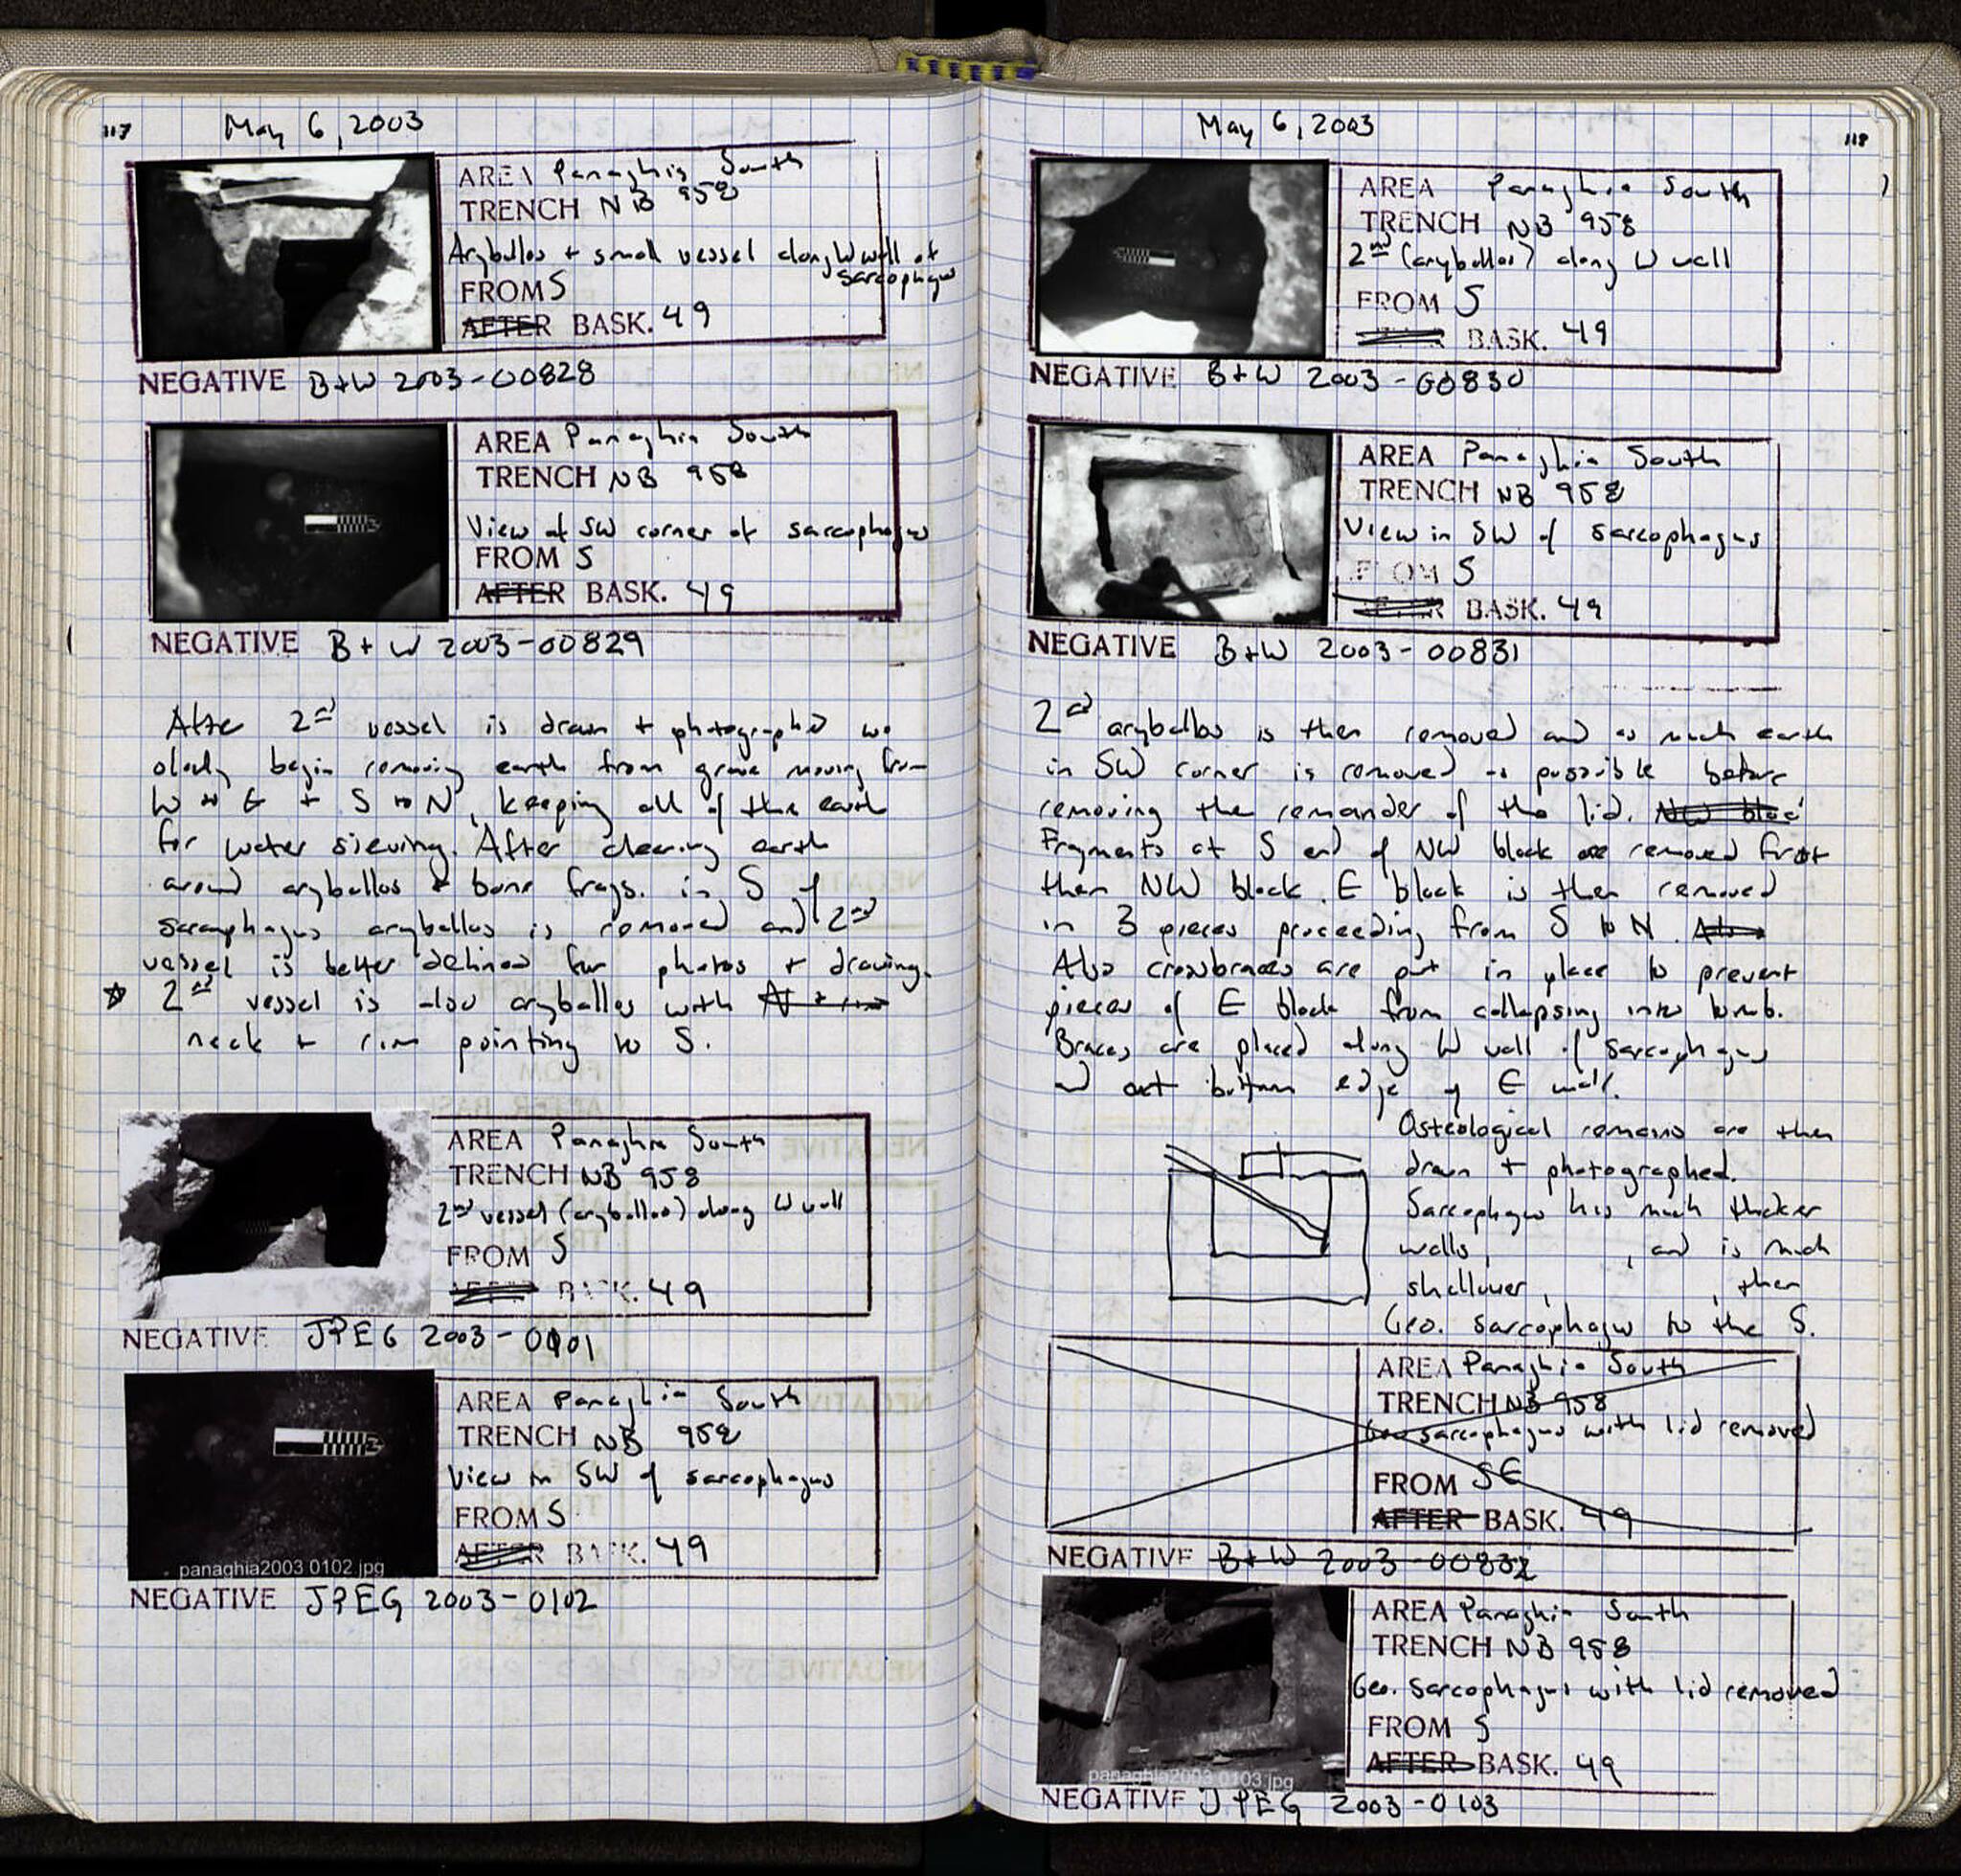 117
May 6, 2003
AREA Panaghia South
TRENCH NB 958
Aryballos + small vessel along W wall of
sarcophagus
FROM S
AFTER BASK. 49
NEGATIVE B+W 2003-00828
AREA Panaghia South
TRENCH NB 958
View of SW corner of sarcophagus
FROM S
AFTER BASK. 49
NEGATIVE B+W 2003-00829
After 2nd vessel is drawn + photographed we
slowly begin removing earth from grave moving from
W to E + S to N, keeping all of the earth
for water sieving. After clearing earth
around aryballos & bone frags. in S of
sarcophagus aryballos is removed and 2nd
vessel is better defined for photos + drawing.
☆ 2nd vessel is also aryballos with
neck + rim pointing to S.
AREA Panaghia South
TRENCH NB 958
2nd vessel (aryballos) along W wall
FROM S
BASK. 49
NEGATIVE JPEG 2003-0101
AREA Panaghia South
TRENCH NB 958
View in SW of sarcophagus
FROM S
AFTER BASK. 49
panaghia2003 0102.jpg
NEGATIVE JPEG 2003-0102
May 6, 2003
118
AREA Panaghia South
TRENCH NB 958
2nd (aryballos) along W wall
FROM S
BASK. 49
NEGATIVE B+W 2003-00830
AREA Panaghia South
TRENCH NB 958
View in SW of sarcophagus
FROM S
BASK. 49
NEGATIVE B+W 2003-00831
2nd aryballos is then removed and as much earth
in SW corner is removed as possible before
removing the remainder of the lid. NW bloc
Fragments at S end of NW block are removed first
then NW block. E block is then removed
in 3 pieces proceeding from S to N. Also
Also crossbraces are put in place to prevent
pieces of E block from collapsing into tomb.
Braces are placed along W wall of sarcophagus
and at bottom edge of E wall.
Osteological remains are then
drawn + photographed.
Sarcophagus has much thicker
walls, , and is much
shallower, , then
Geo. sarcophagus to the S.
AREA Panaghia South
TRENCH NB 958
Geo sarcophagus with lid removed
FROM SE
AFTER BASK. 49
NEGATIVE B+W 2003-00832
AREA Panaghia South
TRENCH NB 958
Geo. Sarcophagus with lid removed
FROM S
AFTER BASK. 49
panaghia2003 0103.jpg
NEGATIVE JPEG 2003-0103